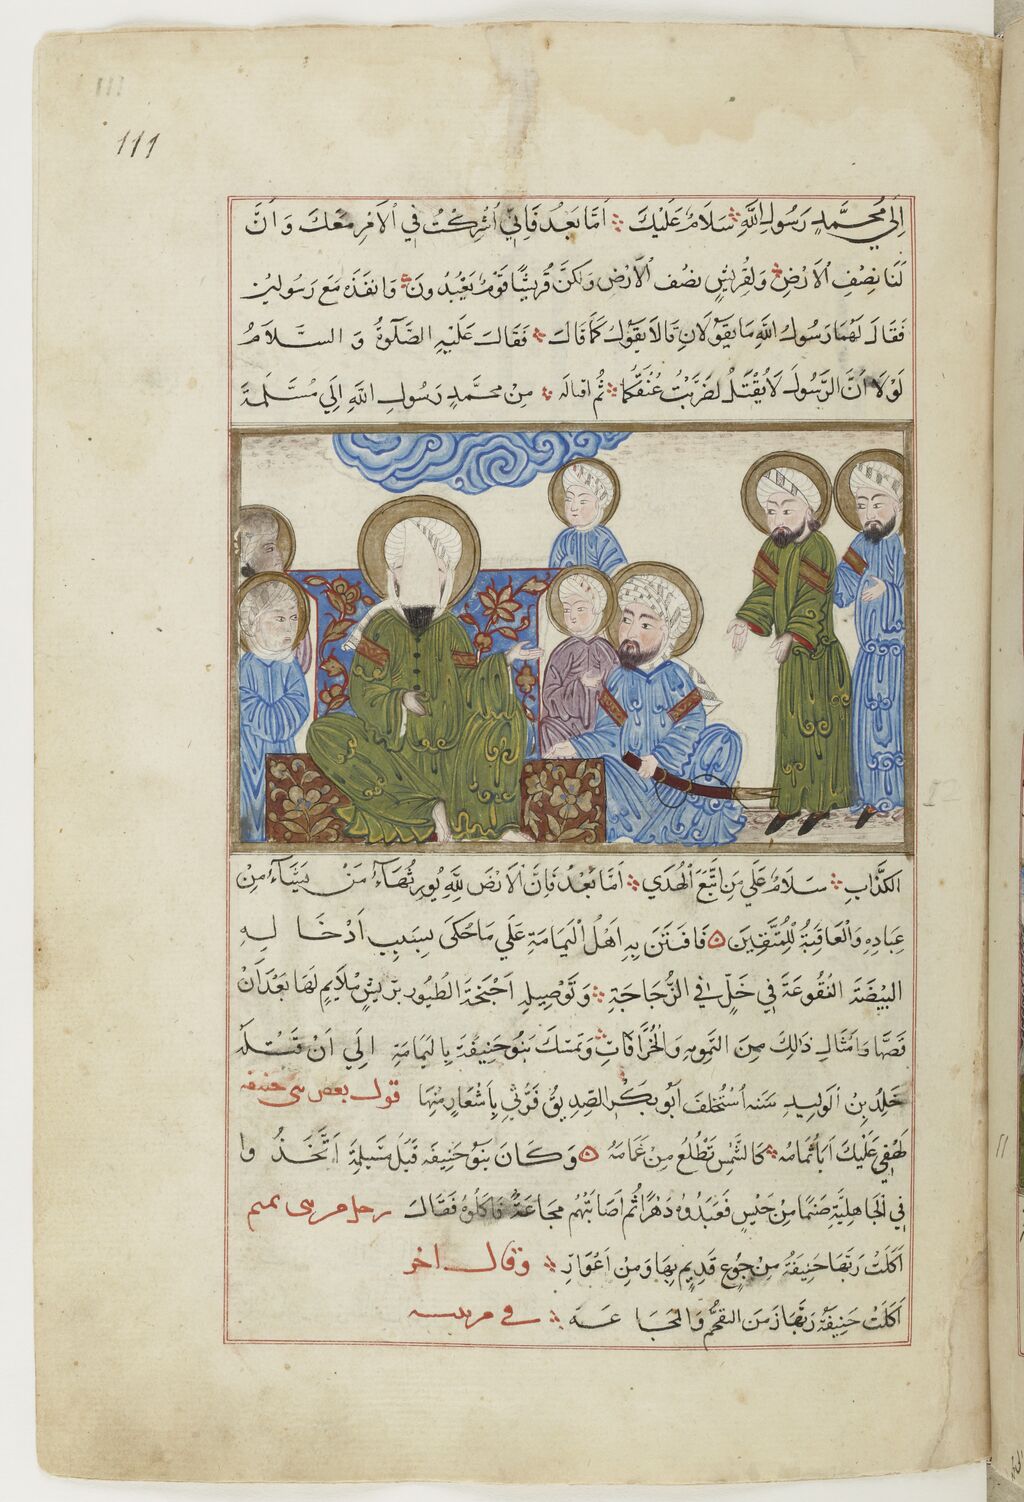 111
إِلَي مُحَمَّدٍ رَسُولِ اللَّهِ سَلَامٌ عَلَيْكَ أَمَّا بَعْدُ فَإِنِّي أُشْرِكْتُ فِي الأَمْرِ مَعَكَ وَ أَنَّ
لَنَا نِصْفَ الأَرْضِ وَلِقُرَيْشٍ نِصْفَ الأَرْضِ وَلَكِنَّ قُرَيْشًا قَوْمٌ يَعْبُدُونَ وَأَنْفَذَهُ مَعَ رَسُولَيْنِ
فَقَالَ لَهُمَا رَسُولُ اللَّهِ مَا يَقُولَانِ قَالَا يَقُولُ كَمَا قَالَ فَقَالَ عَلَيْهِ الصَّلَوةُ وَ السَّلَامُ
لَوْلَا أَنَّ الرَّسُولَ لَا يُقْتَلُ لَضَرَبْتُ عُنُقَكُمَا ثُمَّ مِنْ مُحَمَّدٍ رَسُولِ اللَّهِ إِلَي مُسَيْلَمَةَ
الكَذَّابِ سَلَامٌ عَلَي مَنِ اتَّبَعَ الْهُدَي أَمَّا بَعْدُ فَإِنَّ الأَرْضَ لِلَّهِ يُورِثُهَا مَنْ يَشَاءُ مِنْ
عِبَادِهِ وَالْعَاقِبَةُ لِلْمُتَّقِينَ فَافْتَتَنَ بِهِ أَهْلُ الْيَمَامَةِ عَلَي مَا حُكَى بِسَبَبِ إِدْخَالِهِ
البَيْضَةَ المَنْقُوعَةَ فِي خَلٍّ فِي الزُّجَاجَةِ وَتَوْصِيلِهِ أَجْنِحَةَ الطُّيُورِ بِرِيشٍ مُلَايِمٍ لَهَا بَعْدَ أَنْ
قَصَّهَا وَأَمْثَالِ ذَالِكَ مِنَ التَّمْوِيهِ وَالْخُرَافَاتِ وَتَمَسَّكَ بَنُو حَنِيفَةَ بِالْيَمَامَةِ إِلَي أَنْ قَتَلَهُ
خَلِدُ بنُ الْوَلِيدِ سَنَةَ اسْتُخْلِفَ أَبُو بَكْرِ الصِّدِيقُ فَرُثِيَ بِأَشْعَارٍ مِنْهَا قول بعض بنى حنيفه
لَهْفِي عَلَيْكَ أَبَا ثُمَامَه كَالشَّمْسِ تَطْلُعُ مِنْ غَمَامَه وَ كَانَ بَنُو حَنِيفَه قَبْلَ مُسَيْلِمَةَ اتَّخَذُوا
فِي الْجَاهِلِيَّةِ صَنَمًا مِنْ حَيْسٍ فَعَبَدُوهُ دَهْرًا ثُمَّ أَصَابَتْهُمْ مَجَاعَةٌ فَأَكَلُوهُ فَقَالَ رجل من بنى تميم
أَكَلَتْ رَبَّهَا حَنِيفَةُ مِنْ جُوعٍ قَدِيمٍ بِهَا وَمِنْ أَعْوَازِ وقال اخر
أَكَلَتْ حَنِيفَةُ رَبَّهَا زَمَنَ التَّقَحُّمِ وَالْمَجَاعَة